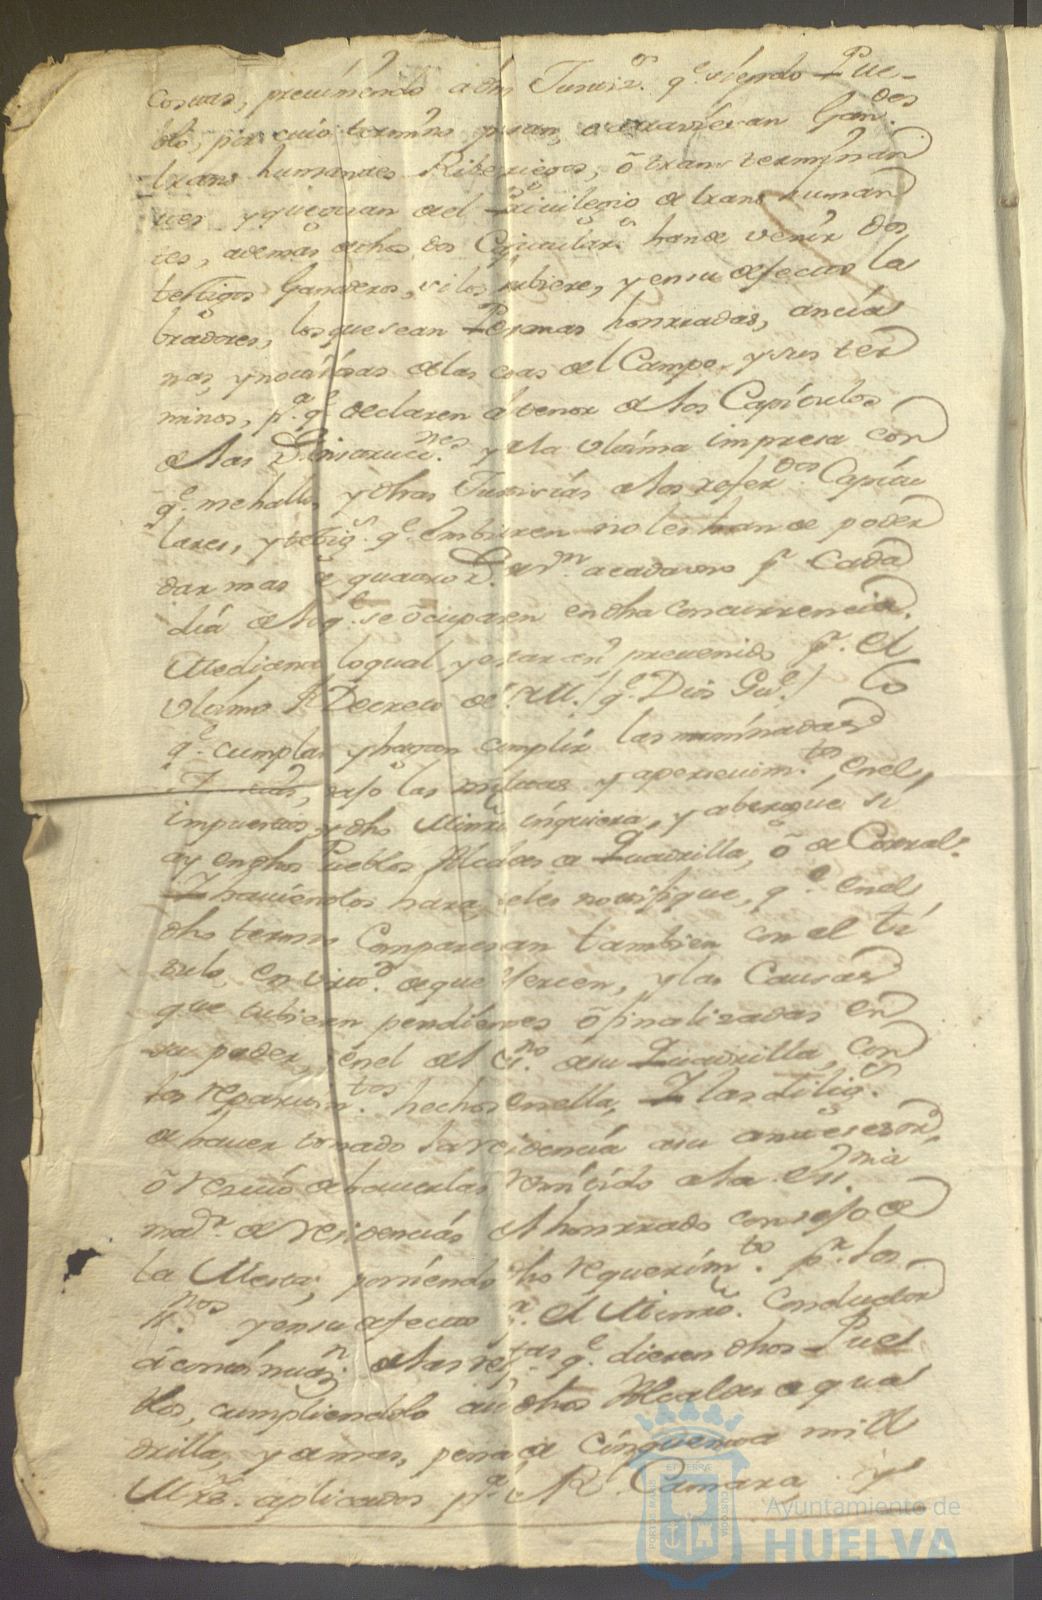 costas, previniendo a d.has Justiz.s q.e siendo Pue-
blo, por cuio termino pasan, o atraviesan Gan.dos
trans humantes Riberiegos, ó trans terminan
tes y que gozan del Privilegio de trans human
tes, ademas de dhos dos Capitular.s han de venir dos
testigos Ganaderos, si los hubiere, y en su defecto la
bradores, los que sean Personas honrradas, ancia
nas, y noticiosas de las cosas del Campo, y sus ter
minos, p.a q.e declaren á tenor de los Capitulos
de las Instrucc.nes y de la ultima impresa con
q.e me hallo, y dhas Justicias a los refer.dos Capitu
lares, y testig.s q.e embiaren no les han de poder
dar mas q.e quatro R.s de v.n a cada uno p.r cada
dia de los q.e se ócuparen en dha concurrencia.
Mediante lo qual, y estar asi prevenido p.r el
ultimo R.l Decreto de S.M. (q.e Dios Gu.e) lo
q.e cumplan y hagan cumplir las nominadas
Justicias, vajo las multas y apercevim.tos en el
impuestos, y dho Ministro inquiera, y aberigue si
ay en dhos Pueblos Alcaldes de Quadrilla, ó de Corral.s
Y haviendolos hara se les notifique, q.e en el
dho termino Comparescan tambien con el ti
tulo en virt.d de que exercen, y las Causas
que tubieren pendientes ó finalizadas en
su poder, ó en el del es.no de su Quadrilla, con
los repartim.tos hechos en ella, Y las dilig.s
de haver tomado la residencia a su antecesor,
ó recivo de haverlas remitido a la es.nia
ma.r de residencias del honrrado consejo de
la Mesta, poniendo dho requerim.to p.r los
ss.nos y en su defecto p.r el Ministro Conductor
á continuaz.n de las res.tas q.e dieren dhos Pue
blos, cumpliendolo asi dhos Alcaldes de qua
drilla, y demas, pena de cinquenta mill
Mrs. aplicados p.a la R.l Camara, y
Ayuntamiento de
HUELVA